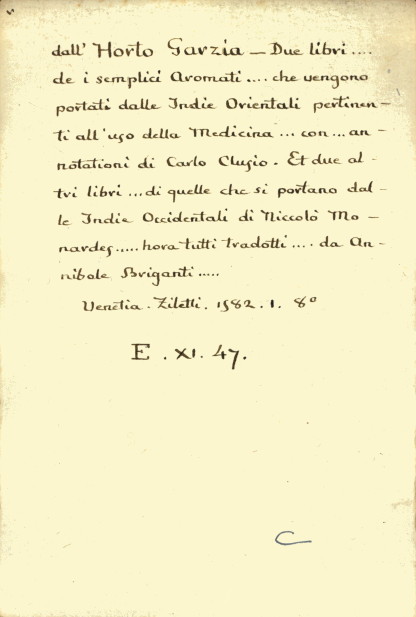 dall' Horto Garzia — Due libri ....
de i semplici Aromati .... che vengono
portati dalle Indie Orientali pertinen-
ti all' uso della Medicina ... con ... an-
notationi di Carlo Clusio. Et due al-
tri libri ... di quelle che si portano dal-
le Indie Occidentali di Niccolò Mo-
nardes ..... hora tutti tradotti .... da An-
nibale Briganti .....
Venetia. Ziletti. 1582. 1. 8º
E. XI. 47.
C